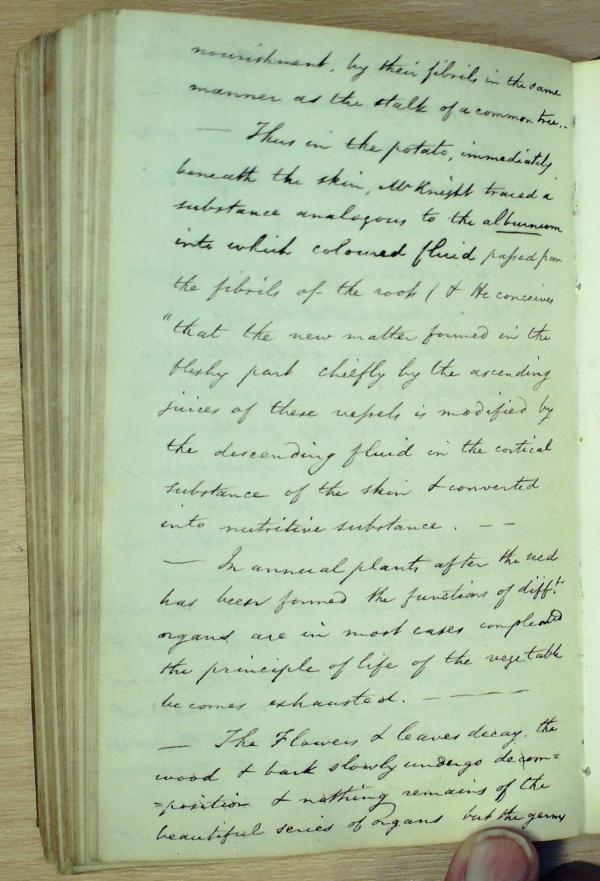 nourishment, by their fibrils in the same
manner as the stalk of a common tree..
— Thus in the potato, immediately
beneath the skin, Mr Knight traced a
substance analogous to the alburnum
into which coloured fluid passed from
the fibrils of the roots ( & He conceives
"that the new matter formed in the
fleshy part chiefly by the ascending
juices of these vessels is modified by
the descending fluid in the cortical
substance of the skin & converted
into nutritive substance. — —
— In annual plants after the seed
has been formed the functions of difft.
organs are in most cases completed
the principle of life of the vegetable
becomes exhausted. — — —
— The Flowers & leaves decay, the
wood & bark slowly undergo decom=
=position & nothing remains of the
beautiful series of organs but the germs